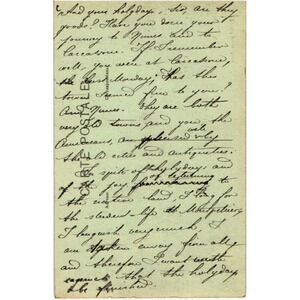 And your holydays, Sir, are they
goods? Have you done your
journey to Nimes and to
Carcasonne. If I remember
well, you were at Carcasonne,
the last Monday, Has this
town seemed fine to you?
And Nimes. They are both
very old towns and you the
Americans, are pleased well by
the old cities and antiquities.
In spite of holydays and
of the joy of returning
to the native land, I long for
the student-life at Montpellier,
I languish very much, I
am taken away from all
and therefore I want
that the holydays
be finished.
CARTE POSTALE